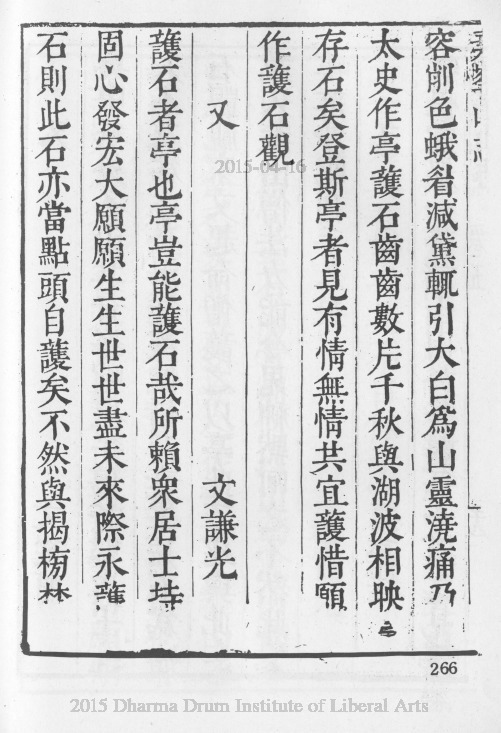 容削色蛾眉減黛輒引大白爲山靈澆痛乃
太史作亭護石齒齒數片千秋與湖波相映
存石矣登斯亭者見有情無情共宜護惜願
作護石觀
又　文謙光
護石者亭也亭豈能護石哉所賴衆居士持
固心發宏大願願生生世世盡未來際永護
石則此石亦當點頭自護矣不然與揭榜林
2015-04-16
266
2015 Dharma Drum Institute of Liberal Arts